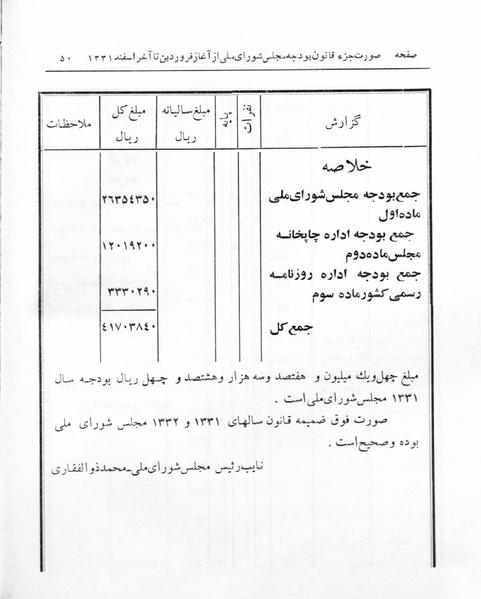 صفحه صورت جزء قانون بودجه مجلس شورای ملی از آغاز فروردین تا آخر اسفند ۱۳۳۱ ۵۰
گزارش نفرات پایه مبلغ سالیانه ریال مبلغ کل ریال ملاحظات
خلاصه
جمع بودجه مجلس شورای ملی ۲۶۳۵۴۳۵۰
ماده اول
جمع بودجه اداره چاپخانه
مجلس ماده دوم ۱۲۰۱۹۲۰۰
جمع بودجه اداره روزنامه
رسمی کشور ماده سوم ۳۳۳۰۲۹۰
جمع کل ۴۱۷۰۳۸۴۰
مبلغ چهل ویك میلیون و هفتصد وسه هزار وهشتصد و چهل ریال بودجه سال
۱۳۳۱ مجلس شورای ملی است .
صورت فوق ضمیمه قانون سالهای ۱۳۳۱ و ۱۳۳۲ مجلس شورای ملی
بوده وصحیح است .
نایب رئیس مجلس شورای ملی ـ محمد ذوالفقاری